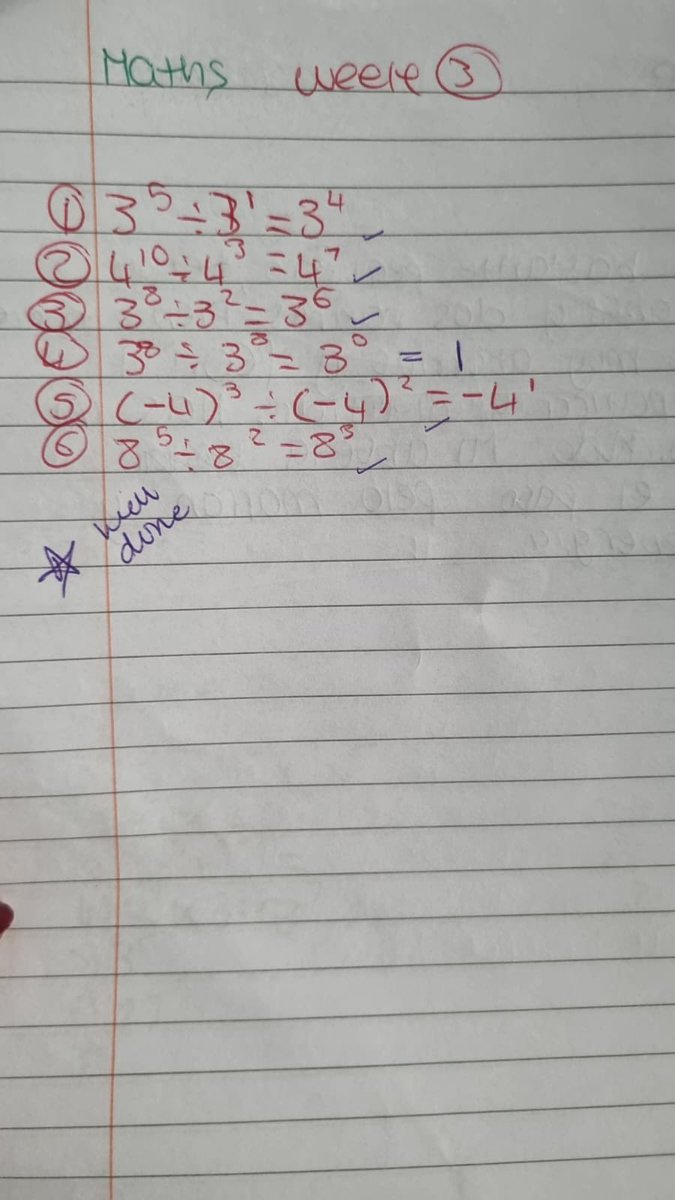 Maths week ③
① 3⁵ ÷ 3¹ = 3⁴ ✓
② 4¹⁰ ÷ 4³ = 4⁷ ✓
③ 3⁸ ÷ 3² = 3⁶ ✓
④ 3⁸ ÷ 3⁸ = 3⁰ = 1
⑤ (-4)³ ÷ (-4)² = -4¹ ✓
⑥ 8⁵ ÷ 8² = 8³ ✓
well
done